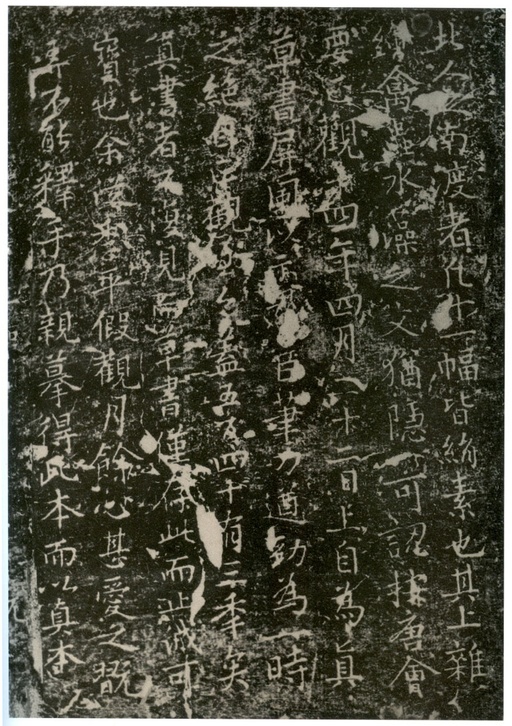 北人之南渡者凡十一幅皆絹素也其上雜
繪禽蟲水藻之文猶隱可認按唐會
要貞觀十四年四月二十二日上自為真
草書屏風以示群臣筆力遒勁為一時
之絕貞觀至今蓋五百四十有三年矣
真書者不復見而草書僅存此而誠可
寶也余從平假觀月餘心甚愛之翫
弄不能釋手乃親摹得此本而以真本